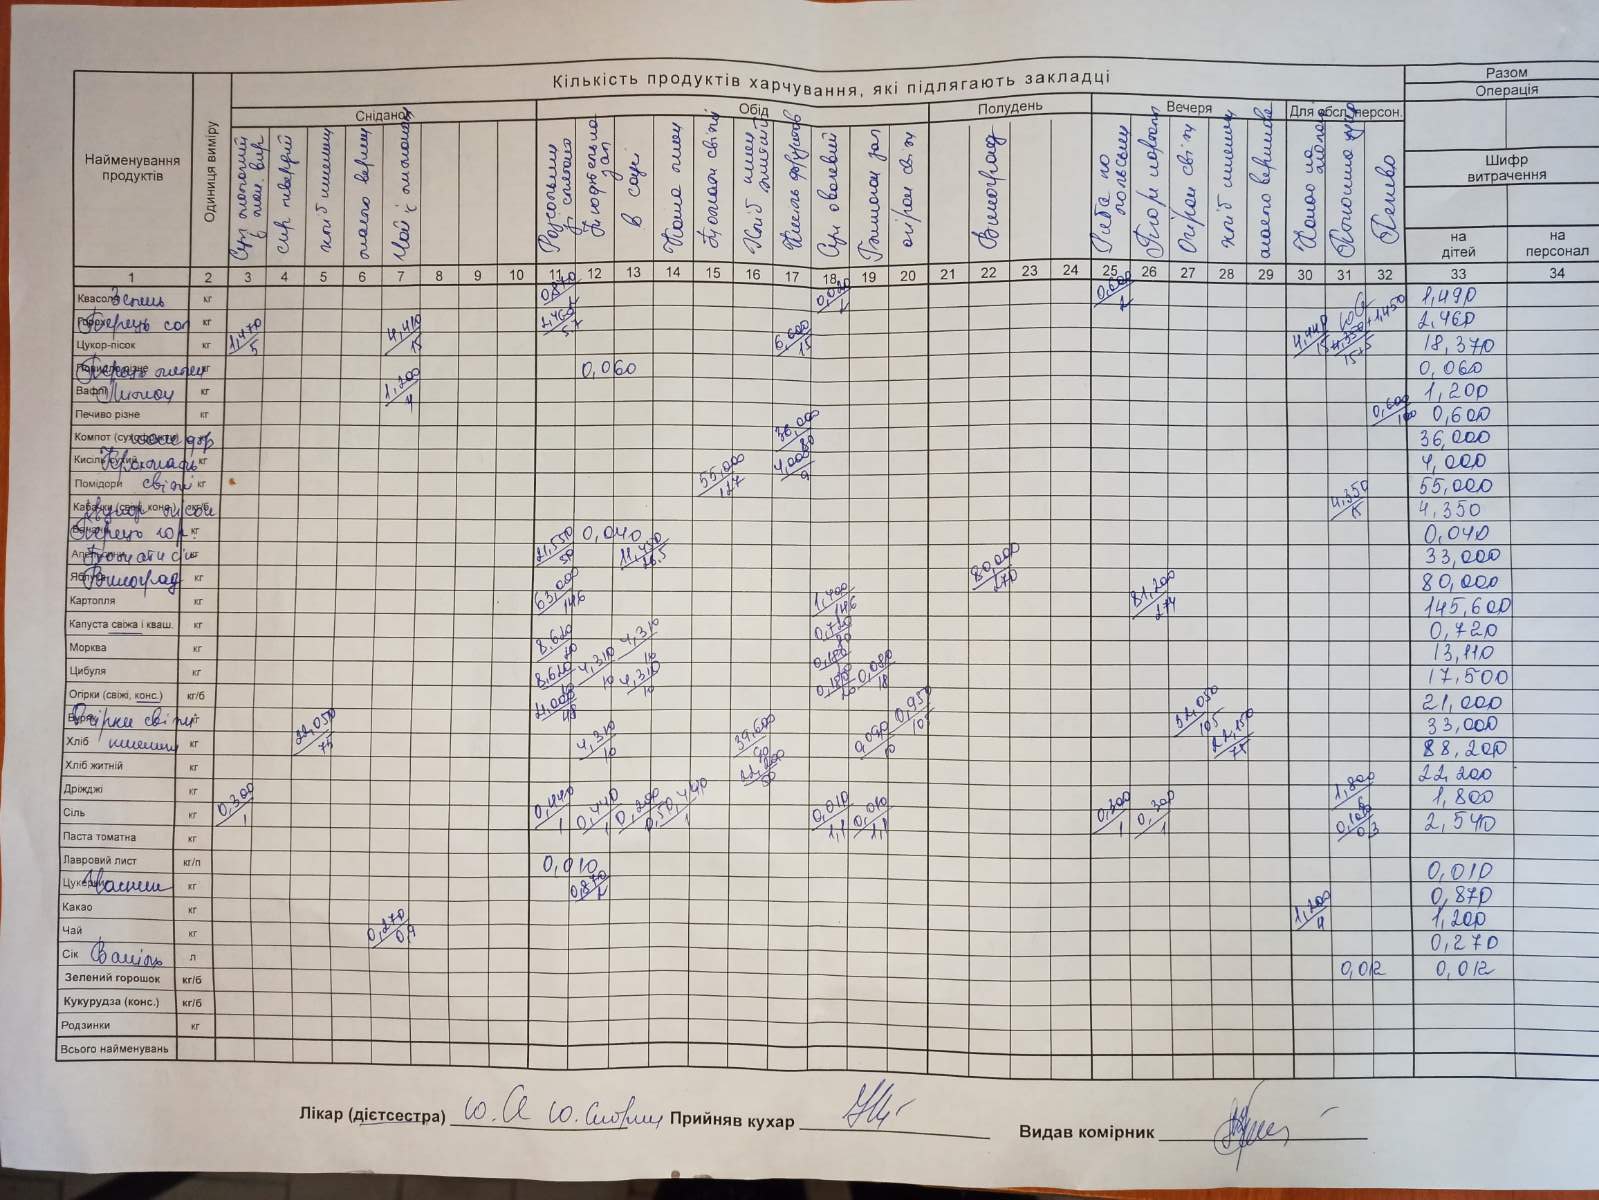 Кількість продуктів харчування, які підлягають закладці
Разом
Операція
Найменування продуктів
Одиниця виміру
Сніданок
Обід
Полудень
Вечеря
Для обсл. персон.
Шифр витрачення
на дітей
на персонал
сир твердий
хліб пшенич
Чай з лимоном
Розсольник
в соусі
Каша пшен
Томати свіжі
Хліб пшен житній
Кисіль фруктов
Суп овочевий
огірки свіжі
Виноград
Риба по польськи
Пюре картоп
Огірки свіжі
хліб пшенич
масло вершков
Какао на молоці
Печиво
1 2 3 4 5 6 7 8 9 10 11 12 13 14 15 16 17 18 19 20 21 22 23 24 25 26 27 28 29 30 31 32 33 34
Квасоля Зелень кг 0,870/2 0,020/2 0,600/2 1,490
Горох Перець сол кг 2,460/5.7 2,460
Цукор-пісок кг 1,470/5 4,410/15 6,600/15 4,440/15 4,350+1,450/15+5 18,370
Повидло різне кг 0,060 0,060
Вафлі Лимон кг 1,200/4 1,200
Печиво різне кг 0,600/100 0,600
Компот (сухофрукти) кг 36,000 36,000
Кисіль сухий Крохмаль кг 4,000/9 4,000
Помідори свіжі кг 55,000/127 55,000
Кабачки (свіжі, конс.) кг/б 4,350/15 4,350
Перець чор. кг 0,040 0,040
Апельсини Томати с/с кг 21,550/50 11,450/26.5 33,000
Яблука Виноград кг 80,000/270 80,000
Картопля кг 63,000/146 1,400/146 81,200/274 145,600
Капуста свіжа і кваш. кг 0,720 0,720
Морква кг 8,620/20 4,310/10 0,180 13,110
Цибуля кг 8,620/20 4,310/10 4,310/10 0,180 0,080/18 17,500
Огірки (свіжі, конс.) кг/б 21,000/48 21,000
Буряк Огірки свіжі кг 0,950/105 32,050/105 33,000
Хліб пшенич кг 22,050/75 4,310/10 39,600/90 0,090/10 22,150/75 88,200
Хліб житній кг 22,200/50 22,200
Дріжджі кг 1,800/6 1,800
Сіль кг 0,300/1 0,440/1 0,440/1 0,200/0,5 0,440/1 0,010/1,1 0,010/1,1 0,300/1 0,300/1 0,100/0,3 2,540
Паста томатна кг
Лавровий лист кг/п 0,010 0,010
Цукерки Часник кг 0,870/2 0,870
Какао кг 1,200/4 1,200
Чай кг 0,270/0,9 0,270
Сік Ваніль л 0,012 0,012
Зелений горошок кг/б
Кукурудза (конс.) кг/б
Родзинки кг
Всього найменувань
Лікар (дієтсестра)
Прийняв кухар
Видав комірник